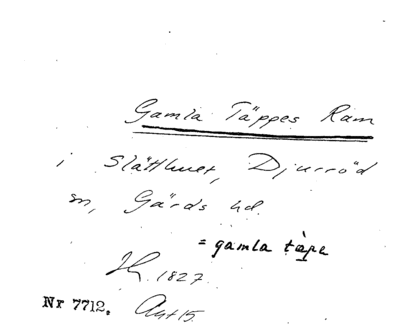 Gamla Täppes Ram
i Slätthuet, Djurröd
sn, Gärds hd.
= gamla tàpe
1827.
Nr 7712. Akt 15.